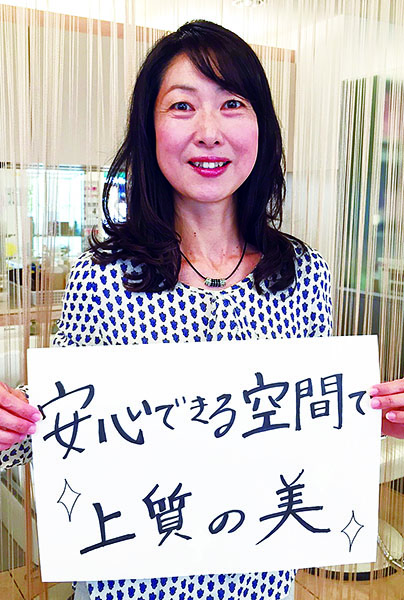 安心できる空間で
上質の美